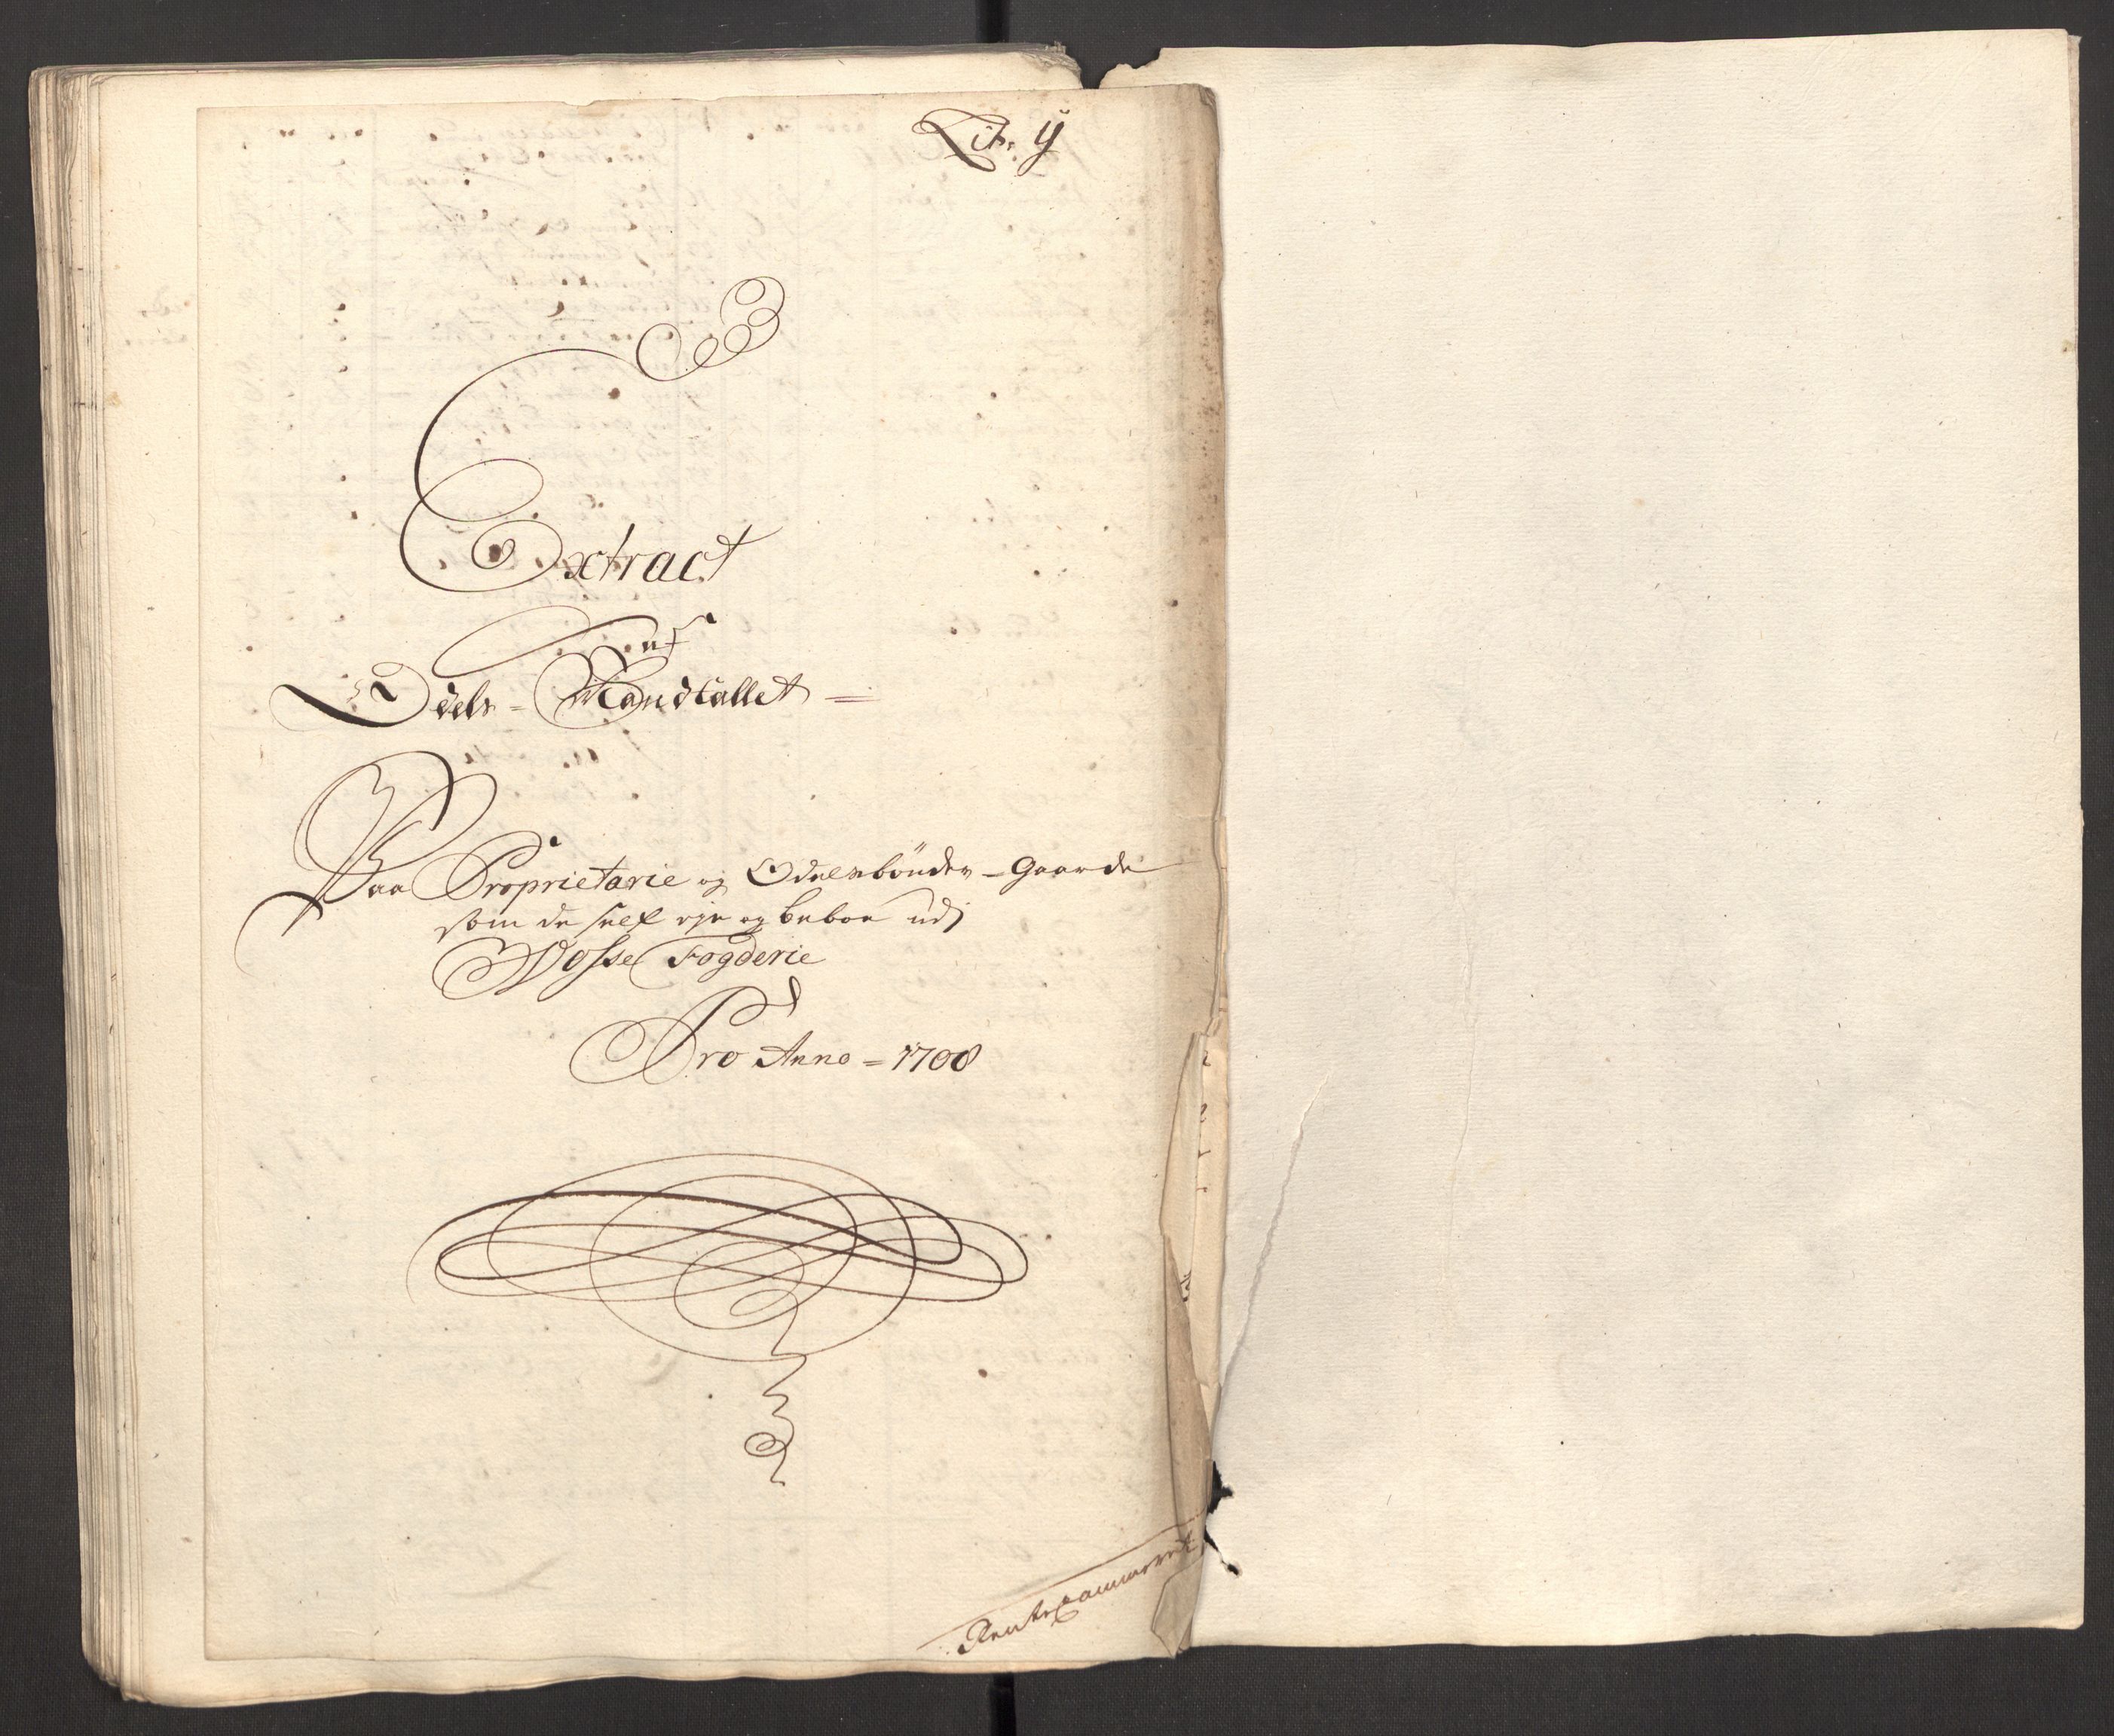 Lit: ÿ
Extract
af
Odels = Mandtallet =
Paa Proprietarie og Odelsbönder = Gaarde
som de self eÿe og beboe udj
Wosse Fogderie
Pro Anno = 1708
RenteCammeret